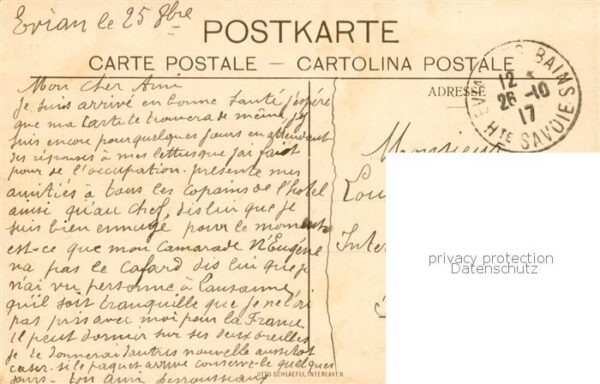 Evian le 25 8bre
POSTKARTE
CARTE POSTALE — CARTOLINA POSTALE
ADRESSE
EVIAN LES BAINS
12
26 -10
17
Hte SAVOIE
Mon cher Ami
Je suis arrivé en bonne santé j'espère
que ma carte te trouvera de même, je
suis encore pour quelques jours en attendant
des réponses à mes lettres que j'ai fait
pour de l'occupation. présente mes
amitiés à tous les copains de l'hotel
ainsi qu'au Chef, dis lui que je
suis bien ennuyé pour le moment
est-ce que mon Camarade N'Eugène
n'a pas le cafard dis lui que je
n'ai vu personne à Lausanne,
qu'il soit tranquille que je ne l'ai
pas pris avec moi pour la France
il peut dormir sur ses deux oreilles
je te donnerai d'autres nouvelle aussitot
caser. si le paquet arrive conserve-le quelques
jours. ton ami
Monsieur
Lou
Inter
privacy protection
Datenschutz
OTTO SCHLAEFLI, INTERLAKEN